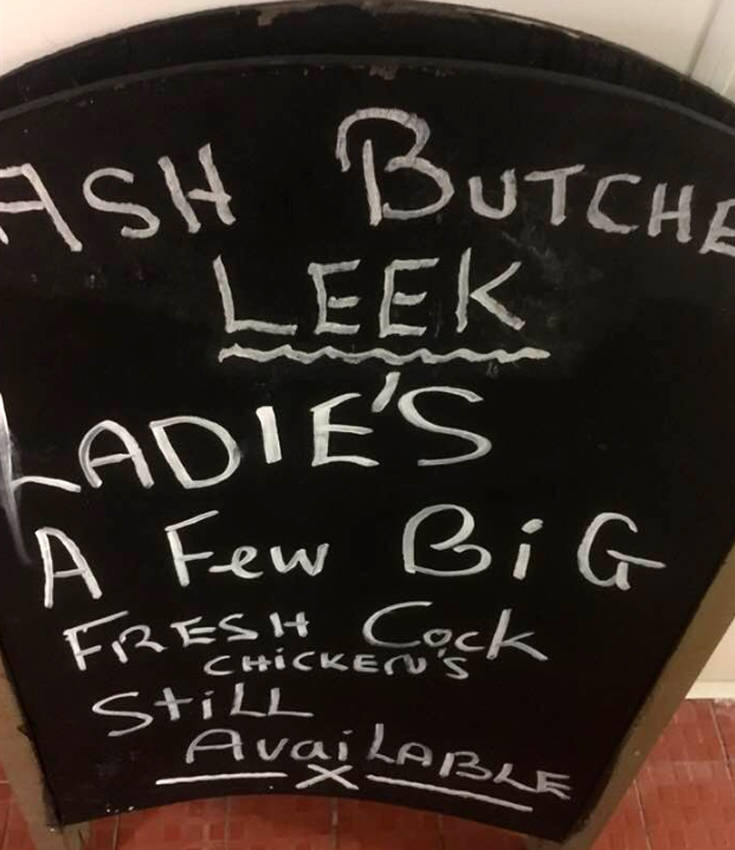 ASH BUTCHE
LEEK
LADIE'S
A Few BiG
FRESH Cock
CHiCKEN'S
StiLL
AvaiLABLE
X